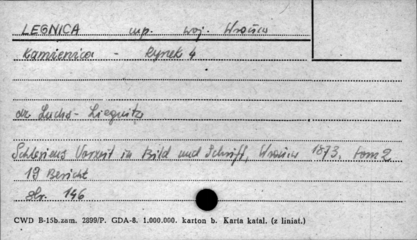 LEGNICA mp. woj. Wrocław
Kamienica - Rynek 4
dr Luchs - Liegnitz
Schlesiens Vorzeit in Bild und Schrift, 1873, tom 2
19 Bericht
str. 146
CWD B-15b.zam. 2899/P. GDA-8. 1.000.000. karton b. Karta katal. (z liniat.)